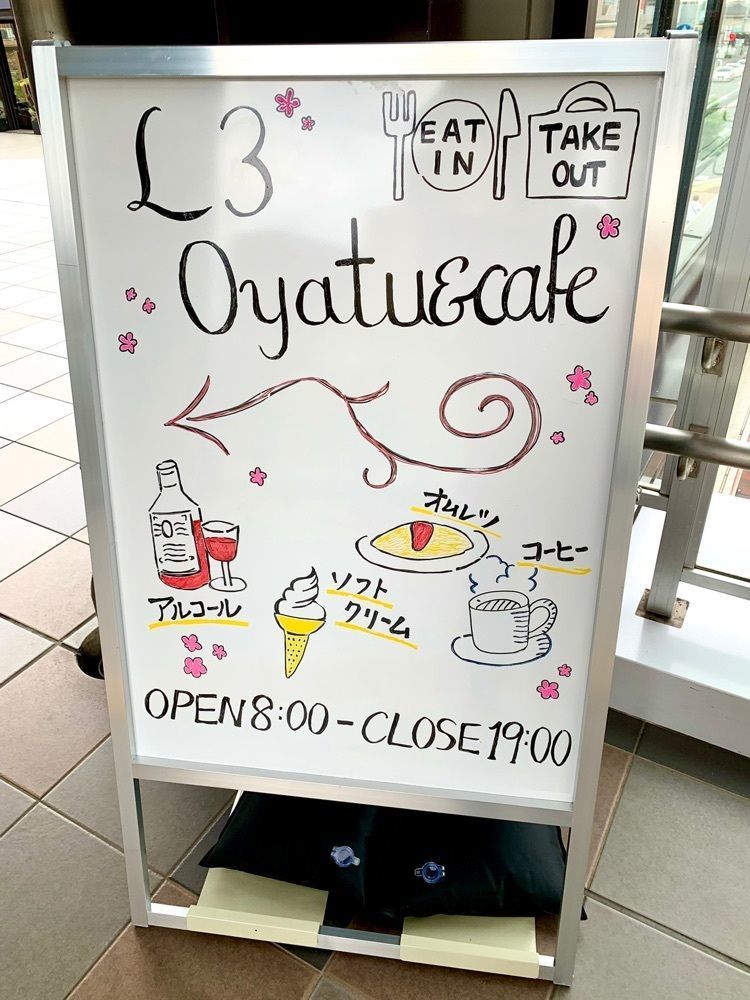 L3
EAT
IN
TAKE
OUT
Oyatu&cafe
オムレツ
コーヒー
アルコール
ソフト
クリーム
OPEN 8:00 - CLOSE 19:00